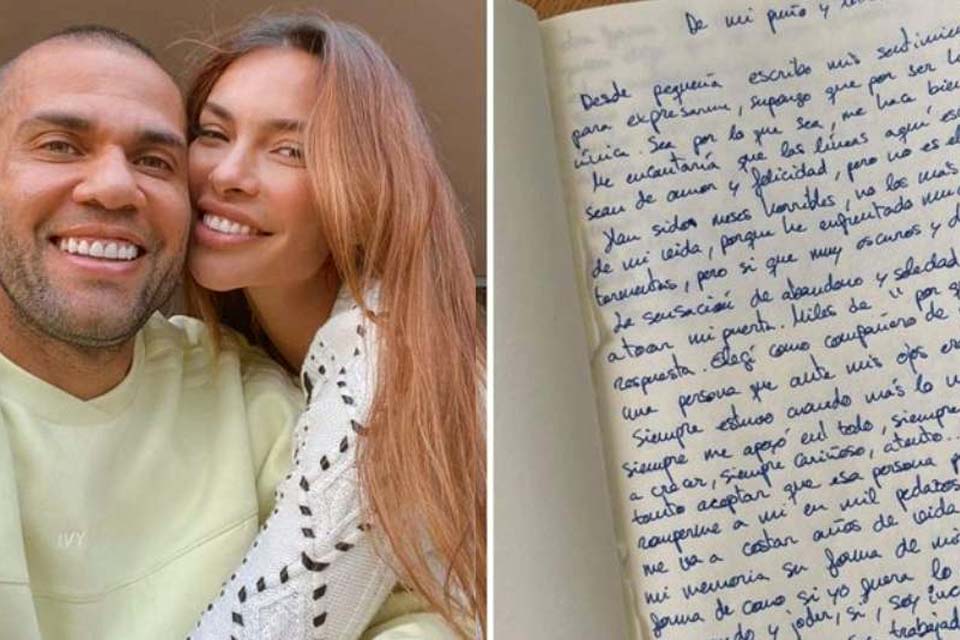 IVY
De mi puño y
Desde pequeña escribo mis
para expresarme, supongo que por ser
única. Sea por lo que sea, me hace bien
Me encantaría que las líneas aquí
sean de amor y felicidad, pero no es el
Han sidos meses horribles, no los más
de mi vida, porque he enfrentado
tormentas, pero si que muy oscuros y
La sensación de abandono y soledad
a tocar mi puerta. Miles de " por
respuesta. Elegí como compañero de
una persona que ante mis ojos
Siempre estuvo cuando más lo
siempre me apoyó en todo, siempre
a crear, siempre cariñoso, atento..
tanto aceptar que esa persona
romperme a mi en mil pedazos
me va a costar años de vida
mi memoria su forma de
forma de como si yo fuera lo
y joder, si, soy
trabajad